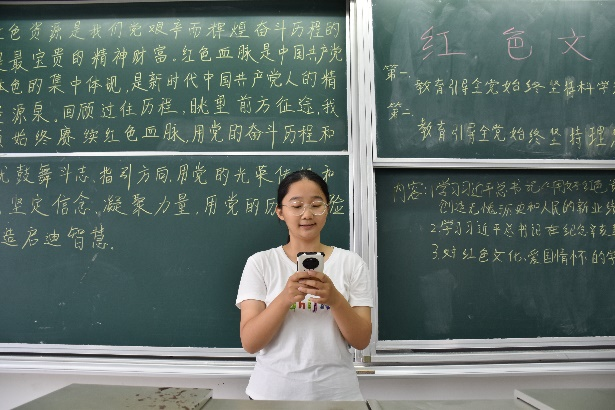 红色资源是我们党艰辛而辉煌奋斗历程的
是最宝贵的精神财富。红色血脉是中国共产党
本色的集中体现,是新时代中国共产党人的精
源泉。回顾过往历程,眺望前方征途,我
始终赓续红色血脉,用党的奋斗历程和
鼓舞斗志、指引方向,用党的光荣
坚定信念、凝聚力量,用党的历
启迪智慧。
红色文
第一、
教育引导全党始终坚持科学
第二、
教育引导全党始终坚持理
内容:1.学习习近平总书记
创造无愧历史和人民的新业绩
2.学习习近平总书记在纪念辛亥
3.对红色文化、爱国情怀的